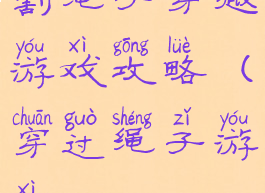 割绳子穿越
yóu xì gōng lüè
游戏攻略（
chuān guò shéng zǐ yóu
穿过绳子游
xì